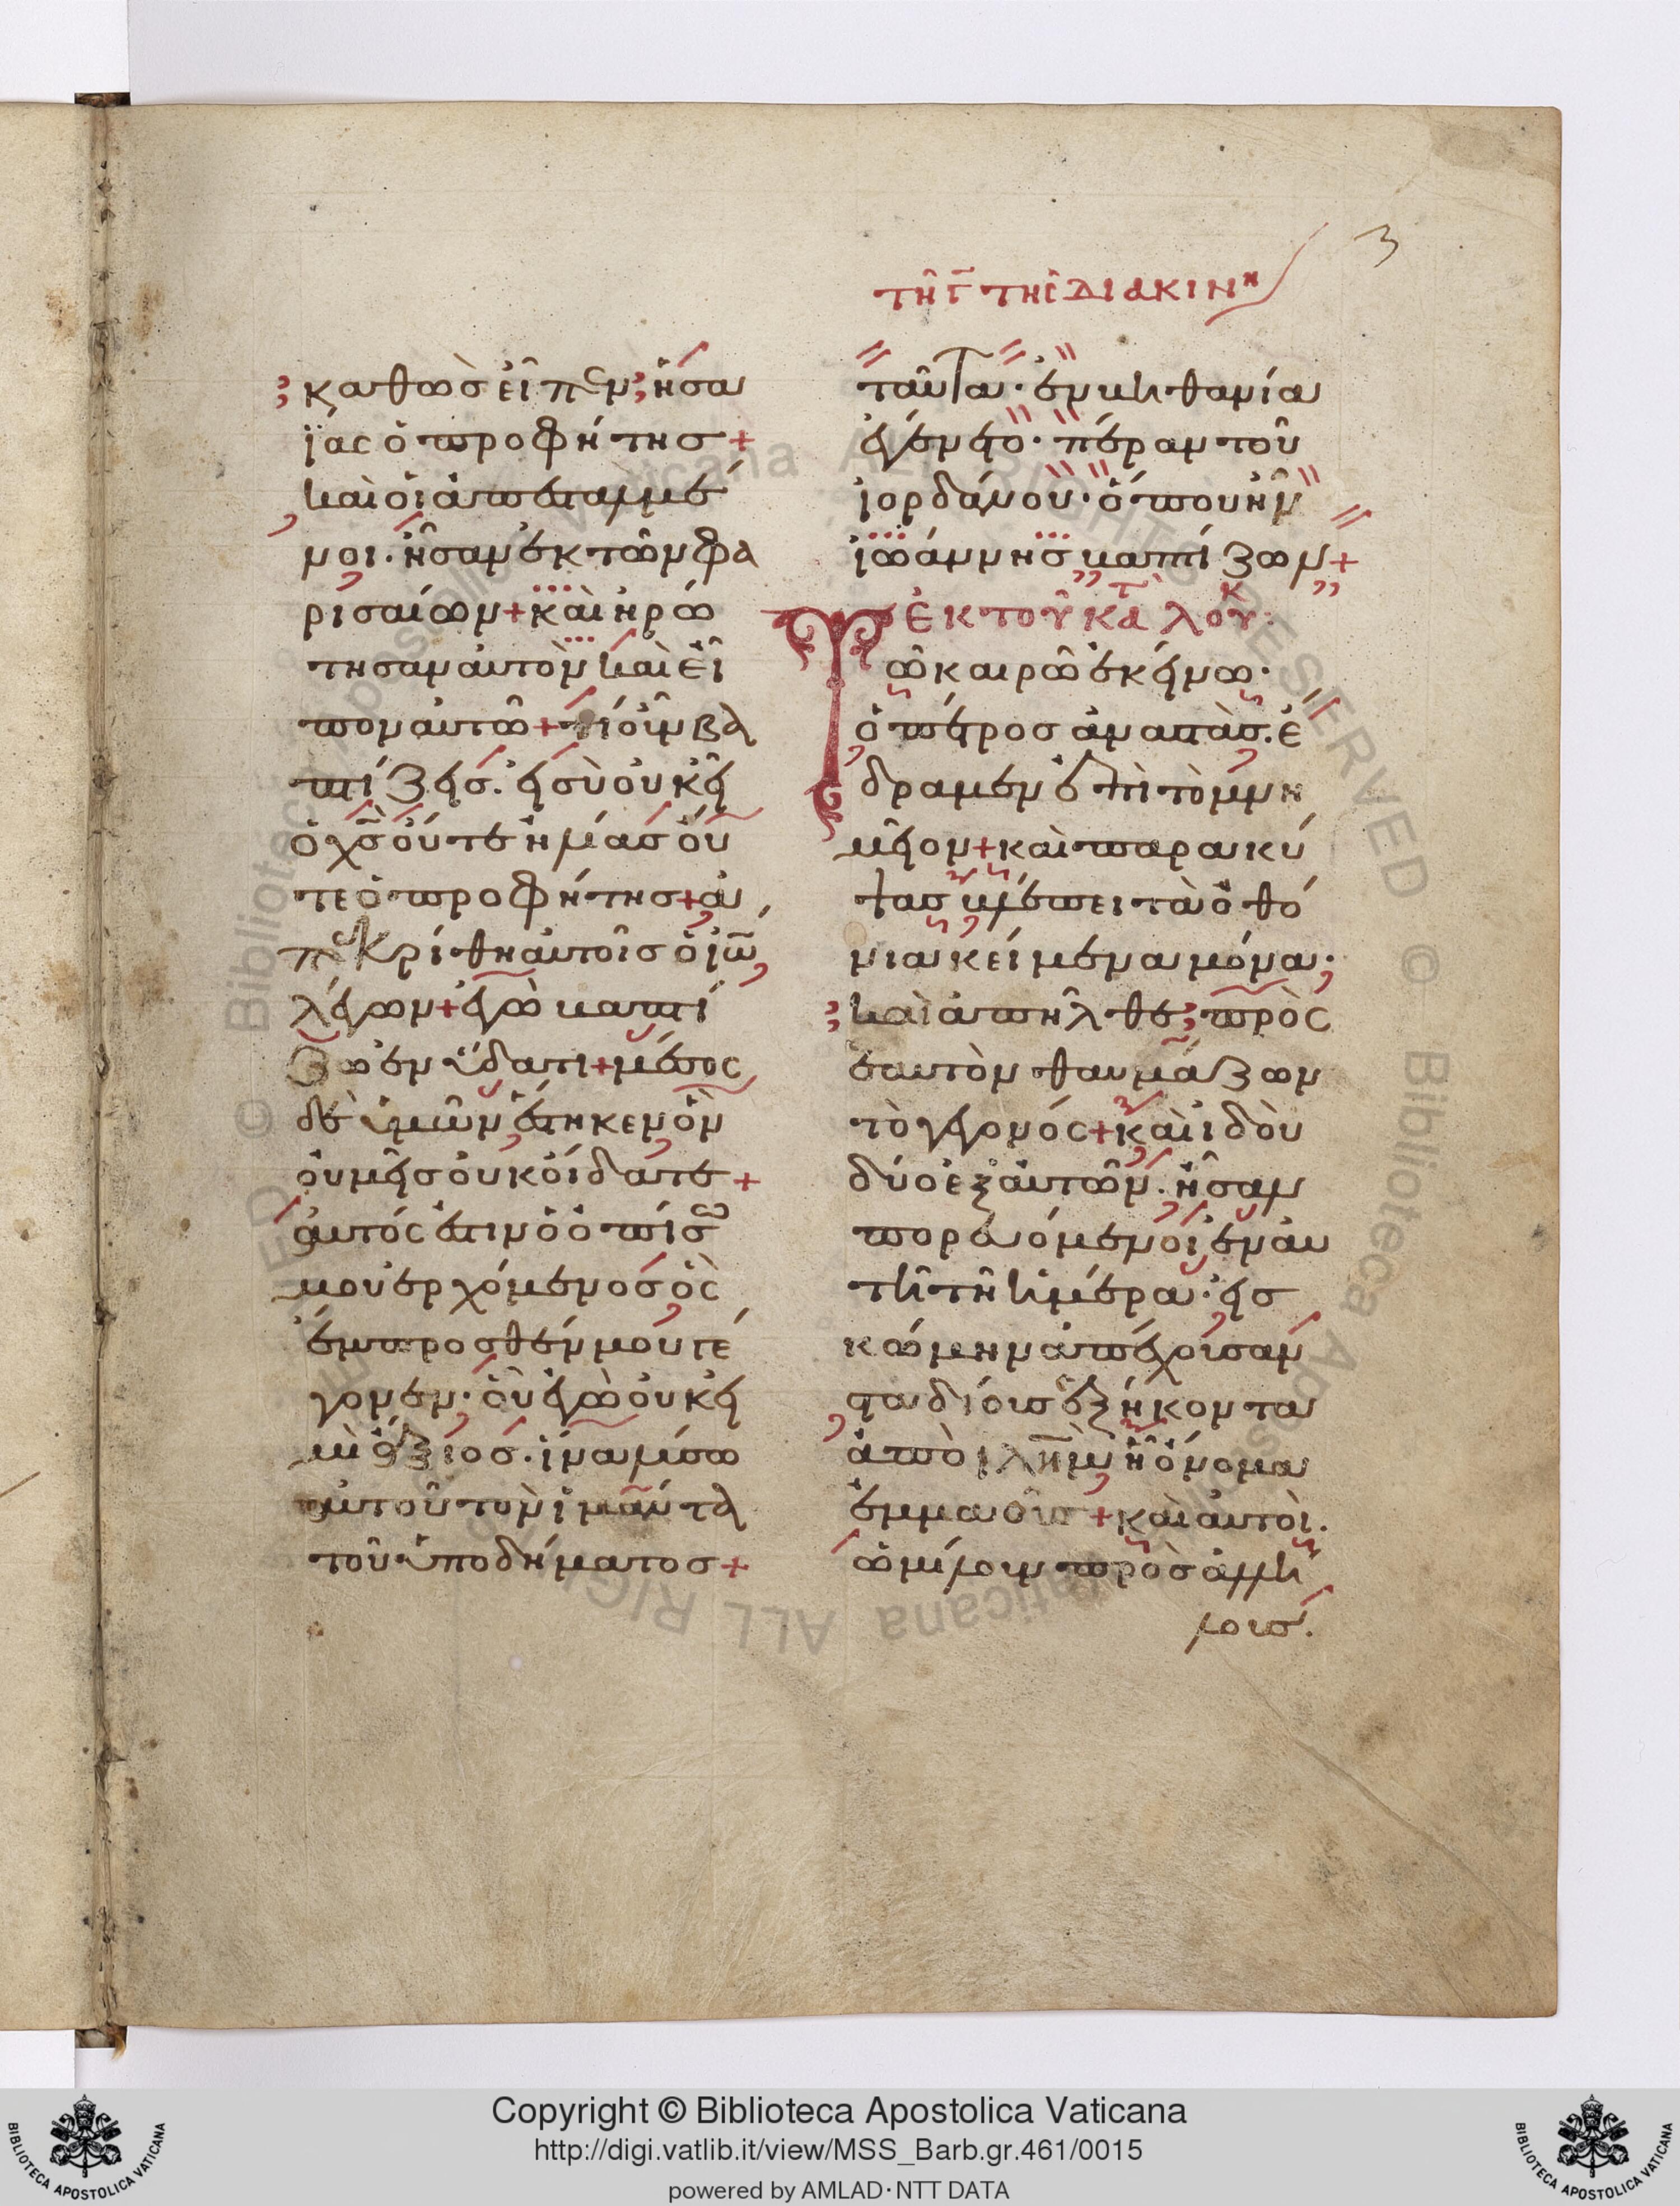 3
καθὼσ εἶπεν ἡσα
ΐας ὁ προφήτησ +
καὶ οἱ ἀπεσταλμέ
νοι. ἦσαν ἐκ τῶν φα
ρισαίων + καὶ ἠρώ
τησαν αὐτὸν καὶ εἶ
πον αὐτῶ + τί οὖν βα
πτίζεισ. εἰ σὺ οὐκ εἶ
ὁ χς οὔτε ἠλίασ οὔ
τε ὁ προφήτησ + ἀ
πεκρίθη αὐτοῖσ ὁ ἰω
λέγων + ἐγὼ βαπτί
ζω ἐν ὕδατι + μέσος
δὲ ὑμῶν ἕστηκεν ὃν
ὑμεῖσ οὐκ οἴδατε +
αὐτός ἐστιν ὁ ὀπίσω
μου ἐρχόμενοσ ὃς
ἔμπροσθέν μου γέ
γονεν. οὗ ἐγὼ οὐκ εἰ
μὶ ἄξιοσ. ἵνα λύσω
αὐτοῦ τὸν ἱμάντα
τοῦ ὑποδήματοσ +
τῆ γ τῆς διακιν
ταῦτα. ἐν βηθανία
ἐγένετο. πέραν τοῦ
ἰορδάνου. ὅπου ἦν
ἰωάννησ βαπτίζων +
ἐκ τοῦ κατ λουκ
Τῶ καιρῶ ἐκείνω.
ὁ πέτροσ ἀναστὰσ. ἔ
δραμεν ἐπὶ τὸ μνη
μεῖον + καὶ παρακύ
ψασ βλέπει τὰ ὀθό
νια κείμενα μόνα.
καὶ ἀπῆλθε πρὸς
ἑαυτὸν θαυμάζων
τὸ γεγονός + καὶ ἰδοὺ
δύο ἐξ αὐτῶν. ἦσαν
πορευόμενοι ἐν αὐ
τῆ τῆ ἡμέρα. εἰσ
κώμην ἀπέχουσαν
σταδίουσ ἑξήκοντα
ἀπὸ ιλημ ἧ ὄνομα
ἐμμαοὺσ + καὶ αὐτοὶ.
ὡμίλουν πρὸσ ἀλλή
λουσ.
Copyright © Biblioteca Apostolica Vaticana
http://digi.vatlib.it/view/MSS_Barb.gr.461/0015
powered by AMLAD·NTT DATA
BIBLIOTECA APOSTOLICA VATICANA
BIBLIOTECA APOSTOLICA VATICANA